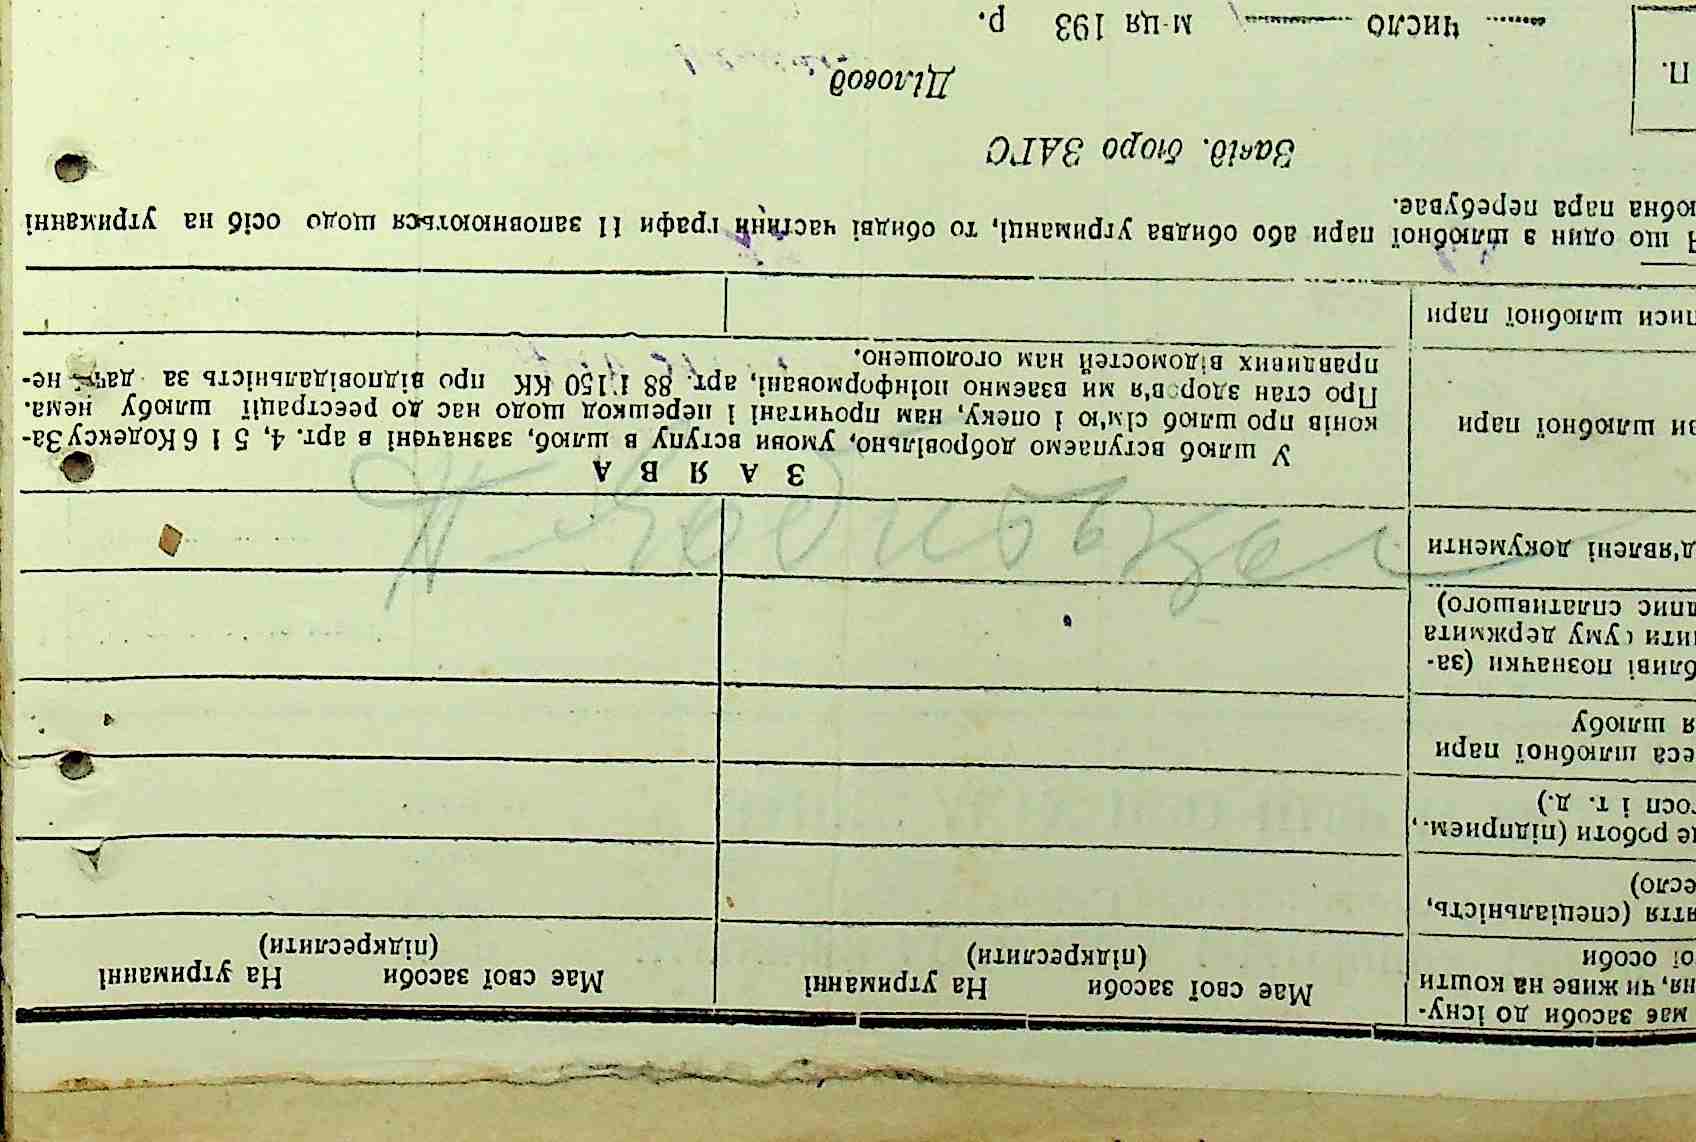 має засоби до існу-
ня, чи живе на кошти
ої особи
Має свої засоби На утриманні
(підкреслити)
Має свої засоби На утриманні
(підкреслити)
яття (спеціальність,
есло)
це роботи (підприєм.,
госп і т. д.)
еса шлюбної пари
я шлюбу
бливі позначки (за-
ити суму держмита
дпис сплатившого)
д'явлені документи
ви шлюбної пари
З А Я В А
У шлюб вступаємо добровільно, умови вступу в шлюб, зазначені в арт. 4, 5 і 6 Кодексу За-
конів про шлюб сім'ю і опеку, нам прочитані і перешкод щодо нас до реєстрації шлюбу нема.
Про стан здоров'я ми взаємно поінформовані, арт. 88 і 150 КК про відповідальність за дачу не-
правдивих відомостей нам оголошено.
писи шлюбної пари
що один з шлюбної пари або обидва утриманці, то обидві частини графи 11 заповнюються щодо осіб на утриманні
юбна пара перебуває.
Завід. бюро ЗАГС
Діловод
П.
число м-ця 193 р.